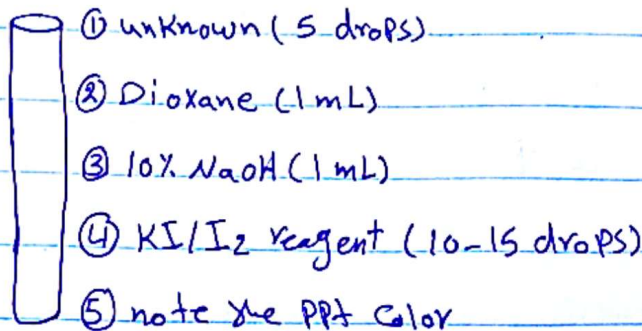 ① unknown (5 drops)
② Dioxane (1 mL)
③ 10% NaOH (1 mL)
④ KI/I2 reagent (10-15 drops)
⑤ note the PPt Color